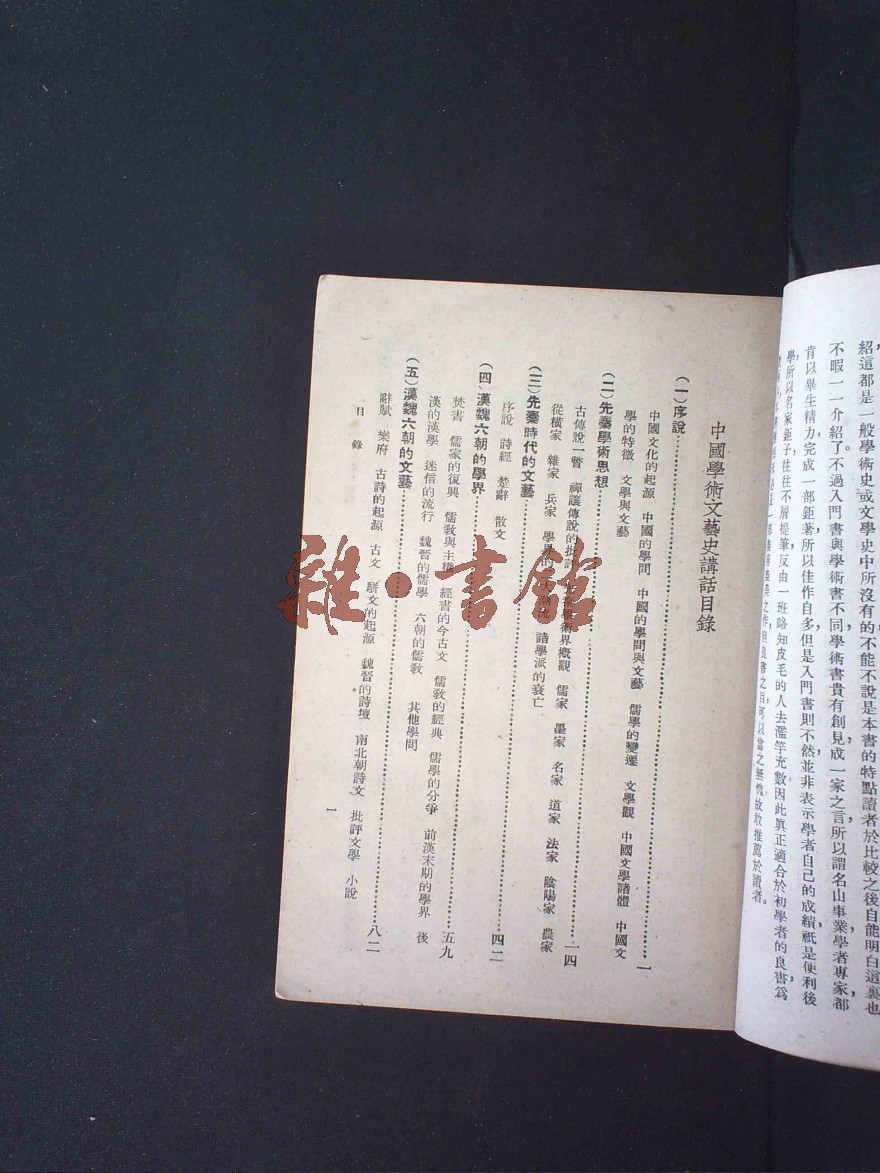 紹這都是一般學術史或文學史中所沒有的不能不說是本書的特點讀者於比較之後自能明白這裏也
不暇一一介紹了。不過入門書與學術書不同學術書貴有創見成一家之言所以謂名山事業學者專家都
肯以畢生精力完成一部鉅著所以佳作自多但是入門書則不然並非表示學者自己的成績祗是便利後
學所以名家鉅子往往不屑提筆反由一班略知皮毛的人去濫竽充數因此眞正適合於初學者的良書爲
之作但良書之目可以當之無愧故敢推薦於讀者。
中國學術文藝史講話目錄
(一)序說 一
中國文化的起源 中國的學問 中國的學問與文藝 儒學的變遷 文學觀 中國文學諸體 中國文
學的特徵 文學與文藝
(二)先秦學術思想 一四
古傳說一瞥 禪讓傳說的批評 學術界概觀 儒家 墨家 名家 道家 法家 陰陽家 農家
從橫家 雜家 兵家 學界的 諸學派的衰亡
(三)先秦時代的文藝 四二
序說 詩經 楚辭 散文
(四)漢魏六朝的學界 五九
焚書 儒家的復興 儒敎與主權 經書的今古文 儒敎的經典 儒學的分爭 前漢末期的學界 後
漢的漢學 迷信的流行 魏晉的儒學 六朝的儒敎 其他學問
(五)漢魏六朝的文藝 八二
辭賦 樂府 古詩的起源 古文 駢文的起源 魏晉的詩壇 南北朝詩文 批評文學 小說
目錄
一
雜·書館